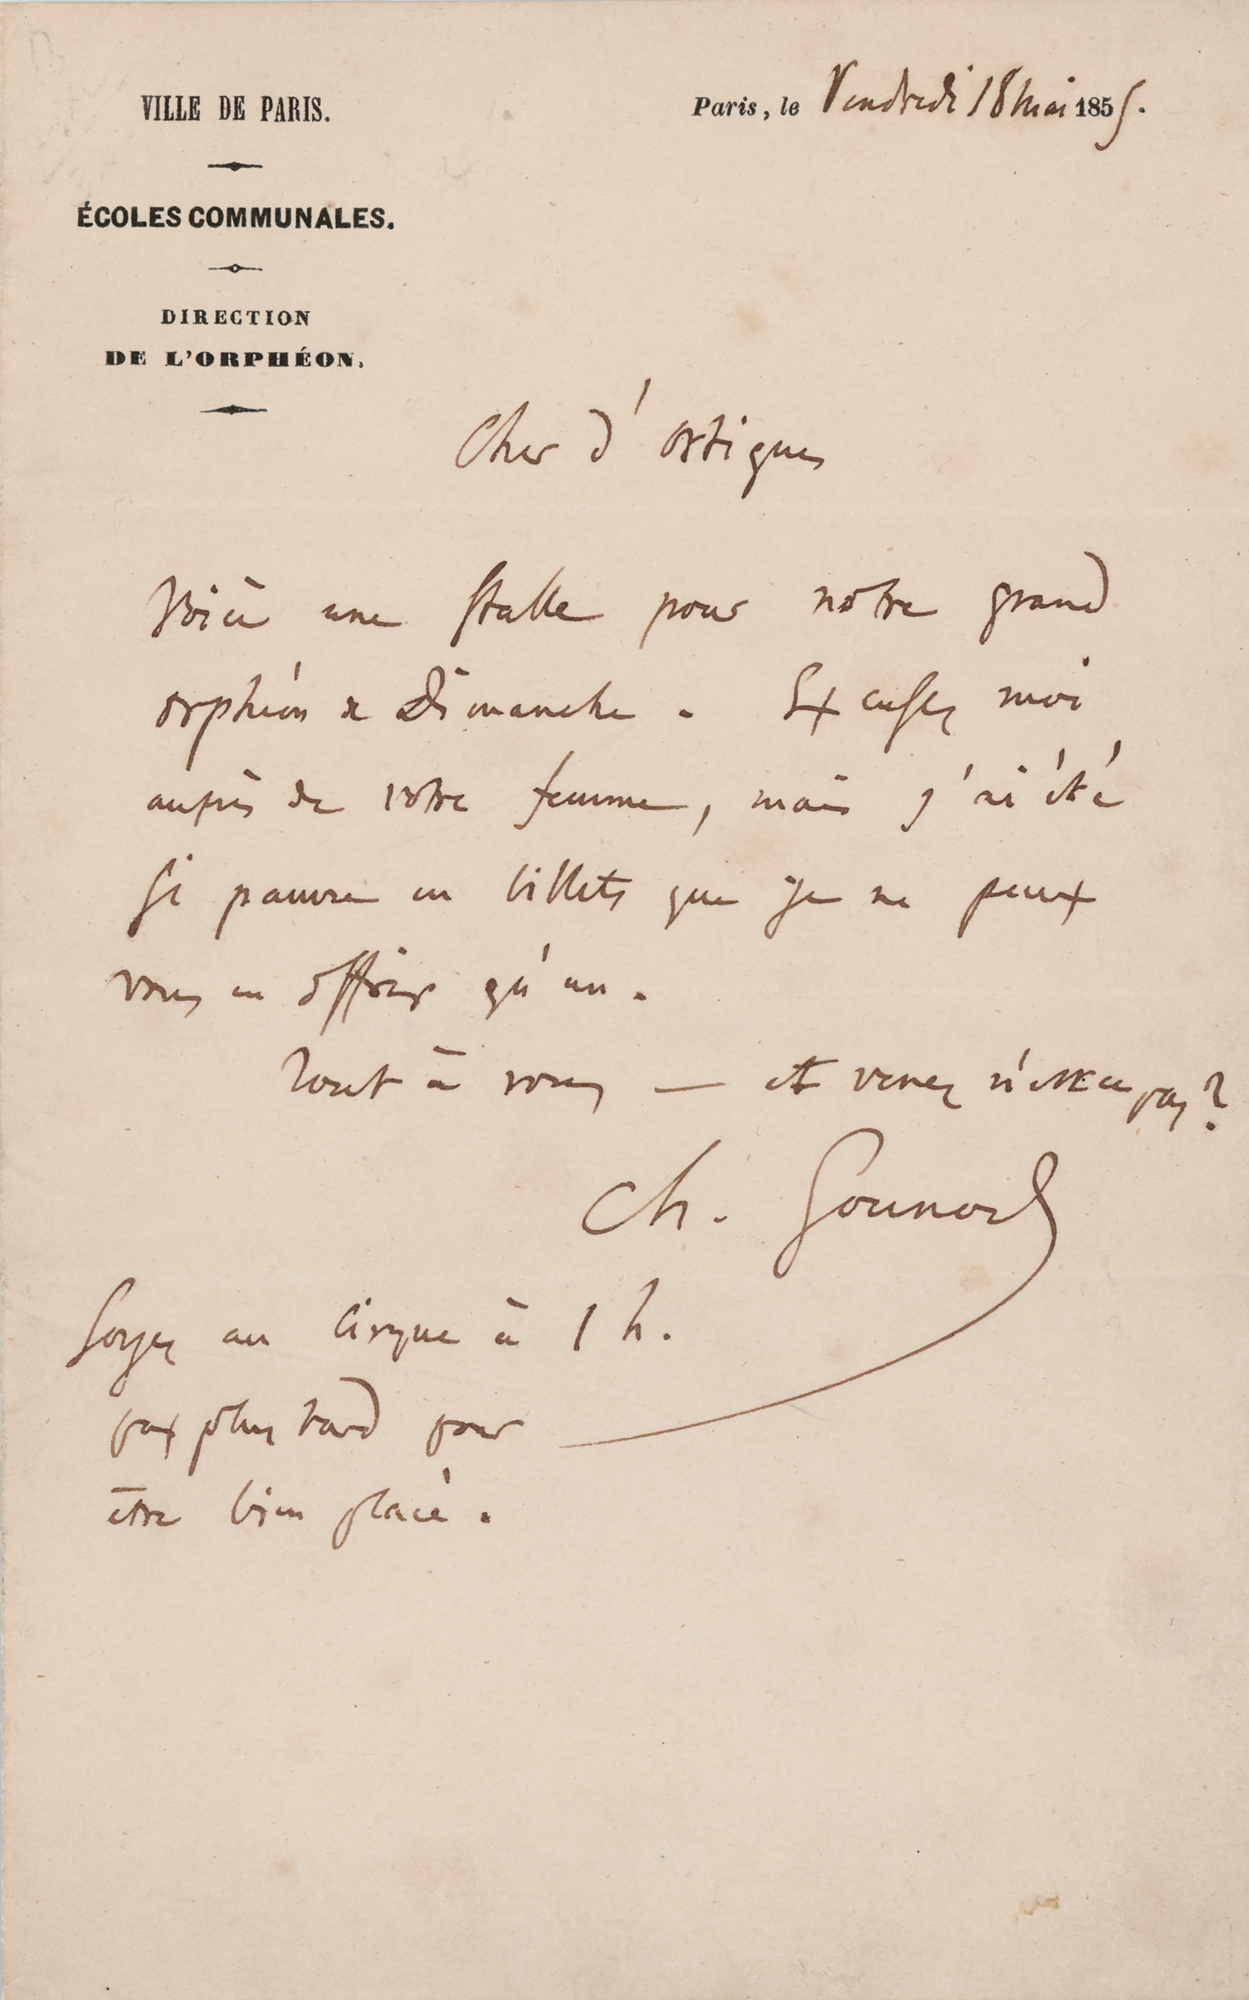 VILLE DE PARIS.
Paris, le Vendredi 18 mai 1855.
ÉCOLES COMMUNALES.
DIRECTION
DE L'ORPHÉON.
Cher d'Ortigues
Voici une stalle pour notre grand
orphéon de Dimanche. Excusez moi
auprès de votre femme, mais j'ai été
si pauvre en billets que je ne peux
vous en offrir qu'un.
Tout à vous — et venez n'est ce pas?
Ch. Gounod
Soyez au Cirque à 1 h.
pas plus tard pour
être bien placé.